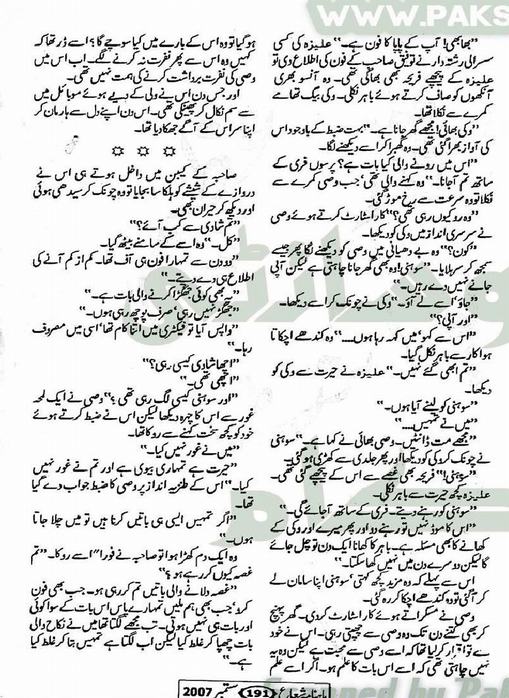 WWW.PAKS
”بھابھی! آپ کے پاپا کا فون ہے۔“ علیزہ کی کسی
سسرالی رشتہ دار نے توفیق صاحب کے فون کی اطلاع دی تو
علیزہ کے پیچھے فریحہ بھی بھاگی تھی۔ وہ آنسو بھری
آنکھوں کو صاف کرتے ہوئے باہر نکلی۔ وکی بیگ تھامے
کمرے سے نکلا تھا۔
”وکی بھائی! مجھے گھر جانا ہے۔“ بہت ضبط کے باوجود اس
کی آواز بھرا گئی تھی۔ وہ گھبرا کر اسے دیکھنے لگا۔
”اس میں رونے والی کیا بات ہے؟ پرسوں فری کے
ساتھ تم آجانا۔“ وہ کہنے والی تھی‘ جب وصی کمرے سے
نکلا تو وہ سرعت سے رخ موڑ گئی۔
”وہ رو کیوں رہی تھی؟“ کار اسٹارٹ کرتے ہوئے وصی
نے سرسری انداز میں وکی کو دیکھا۔
”کون؟“ وہ بے دھیانی میں وصی کو دیکھنے لگا پھر جیسے
سمجھ کر سر ہلایا۔ ”سوہنی! وہ بھی گھر جانا چاہتی ہے لیکن آپی
جانے نہیں دے رہیں۔“
”جاؤ‘ اسے لے آؤ۔“ وکی نے چونک کر اسے دیکھا۔
”اور آپی؟“
”اس سے کہو‘ میں کہہ رہا ہوں....“ وہ کندھے اچکاتا
ہوا کار سے باہر نکل گیا۔
”تم ابھی گئے نہیں۔“ علیزہ نے حیرت سے وکی کو
دیکھا۔
”سوہنی کو لینے آیا ہوں۔“
”میں نے تمہیں....“
”مجھے مت ڈانٹیں۔ وصی بھائی نے کہا ہے۔“ سوہنی
نے چونک کر وکی کو دیکھا اور پھر جلدی سے کھڑی ہو گئی۔
”سوہنی!“ فریحہ بھی غصے سے اس کے پیچھے گئی تھی۔
علیزہ کچھ حیرت سے باہر نکلی۔
”سوہنی کو رہنے دیتے۔ فری کے ساتھ آجائے گی۔“
”اس کا موڈ نہیں تو رہنے دو اور پھر میرے اور وکی کے
کھانے کا بھی مسئلہ ہے۔ باہر کا کھانا ایک دن تو چل جائے
گا دوسرے دن میں نہیں کھا سکتا۔“
اس سے پہلے کہ وہ مزید کچھ کہتی‘ سوہنی اپنا سامان لے
کر آگئی تو وہ کندھے اچکا کر رہ گئی۔
وصی نے مسکراتے ہوئے کار اسٹارٹ کر دی۔ گھر پہنچ
کر بھی کتنے دن تک وہ وصی سے چھپتی رہی۔ اس نے خود
سے تو اقرار کر لیا تھا کہ اسے وصی سے محبت ہے لیکن وہ یہ
نہیں چاہتی تھی کہ اسے اس بات کا علم ہو۔ اگر اسے علم
ہو گیا تو وہ اس کے بارے میں کیا سوچے گا؟ اسے ڈر تھا کہ
کہیں وہ اس سے پھر نفرت نہ کرنے لگے۔ اب اس میں
وصی کی نفرت برداشت کرنے کی ہمت نہیں تھی۔
اور جس دن اس نے ولی کے دیے ہوئے موبائل میں
سے سم نکال کر پھینکی تھی۔ اس دن اپنے دل سے ہار مان کر
اپنا سر اس کے آگے جھکا دیا تھا۔
☼ ☼ ☼
صاحبہ کے کیبن میں داخل ہوتے ہی اس نے
دروازے کے شیشے کو ہلکا سا بجایا تو وہ چونک کر سیدھی ہوئی
اور دیکھ کر حیران تھی۔
”تم شادی سے کب آئے؟“
”کل۔“ وہ اس کے سامنے بیٹھ گیا۔
”دو دن سے تمہارا فون ہی آف تھا۔ کم از کم آنے کی
اطلاع ہی دے دیتے۔“
”بھی کوئی جھگڑا کرنے والی بات ہے۔“
”جھگڑ نہیں رہی‘ صرف پوچھ رہی ہوں۔“
”واپس آیا تو فیکٹری میں اتنا کام تھا‘ اسی میں مصروف
رہا۔“
”اچھا شادی کیسی رہی؟“
”اچھی تھی۔“
”اور سوہنی کیسی لگ رہی تھی؟“ وصی نے ایک لمحہ
غور سے اس کا چہرہ دیکھا لیکن اس نے ضبط کرتے ہوئے
خود کو کچھ سخت کہنے سے روکا تھا۔
”میں نے غور نہیں کیا۔“
”حیرت ہے تمہاری بیوی ہے اور تم نے غور نہیں
کیا۔“ اس کے طنزیہ انداز پر وصی کا ضبط جواب دے گیا
تھا۔
”اگر تمہیں ایسی ہی باتیں کرنا ہیں تو میں چلا جاتا
ہوں۔“
وہ ایک دم کھڑا ہوا تو صاحبہ نے فوراً اسے روکا۔ ”تم
غصہ کیوں کر رہے ہو؟“
”غصہ دلانے والی باتیں تم کر رہی ہو۔ جب بھی فون
کرو‘ جب بھی ہم ملیں تمہارے پاس اس بات کے سوا کوئی
اور بات ہی نہیں ہوتی۔ تب مجھے لگتا تھا میں نے نکاح والی
بات چھپا کر غلط کیا لیکن اب لگتا ہے تمہیں بتا کر غلط کیا
ہے۔“
ماہنامہ شعاع 191 ستمبر 2007